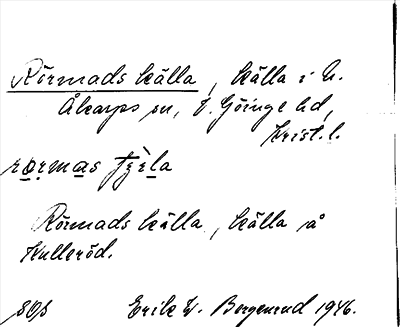 Rörmads källa, källa i N.
Åkarps sn, V. Göinge hd,
Krist. l.
rœrmas
Rörmads källa, källa å
Kulleröd.
Erik W. Bergenrud 1946.